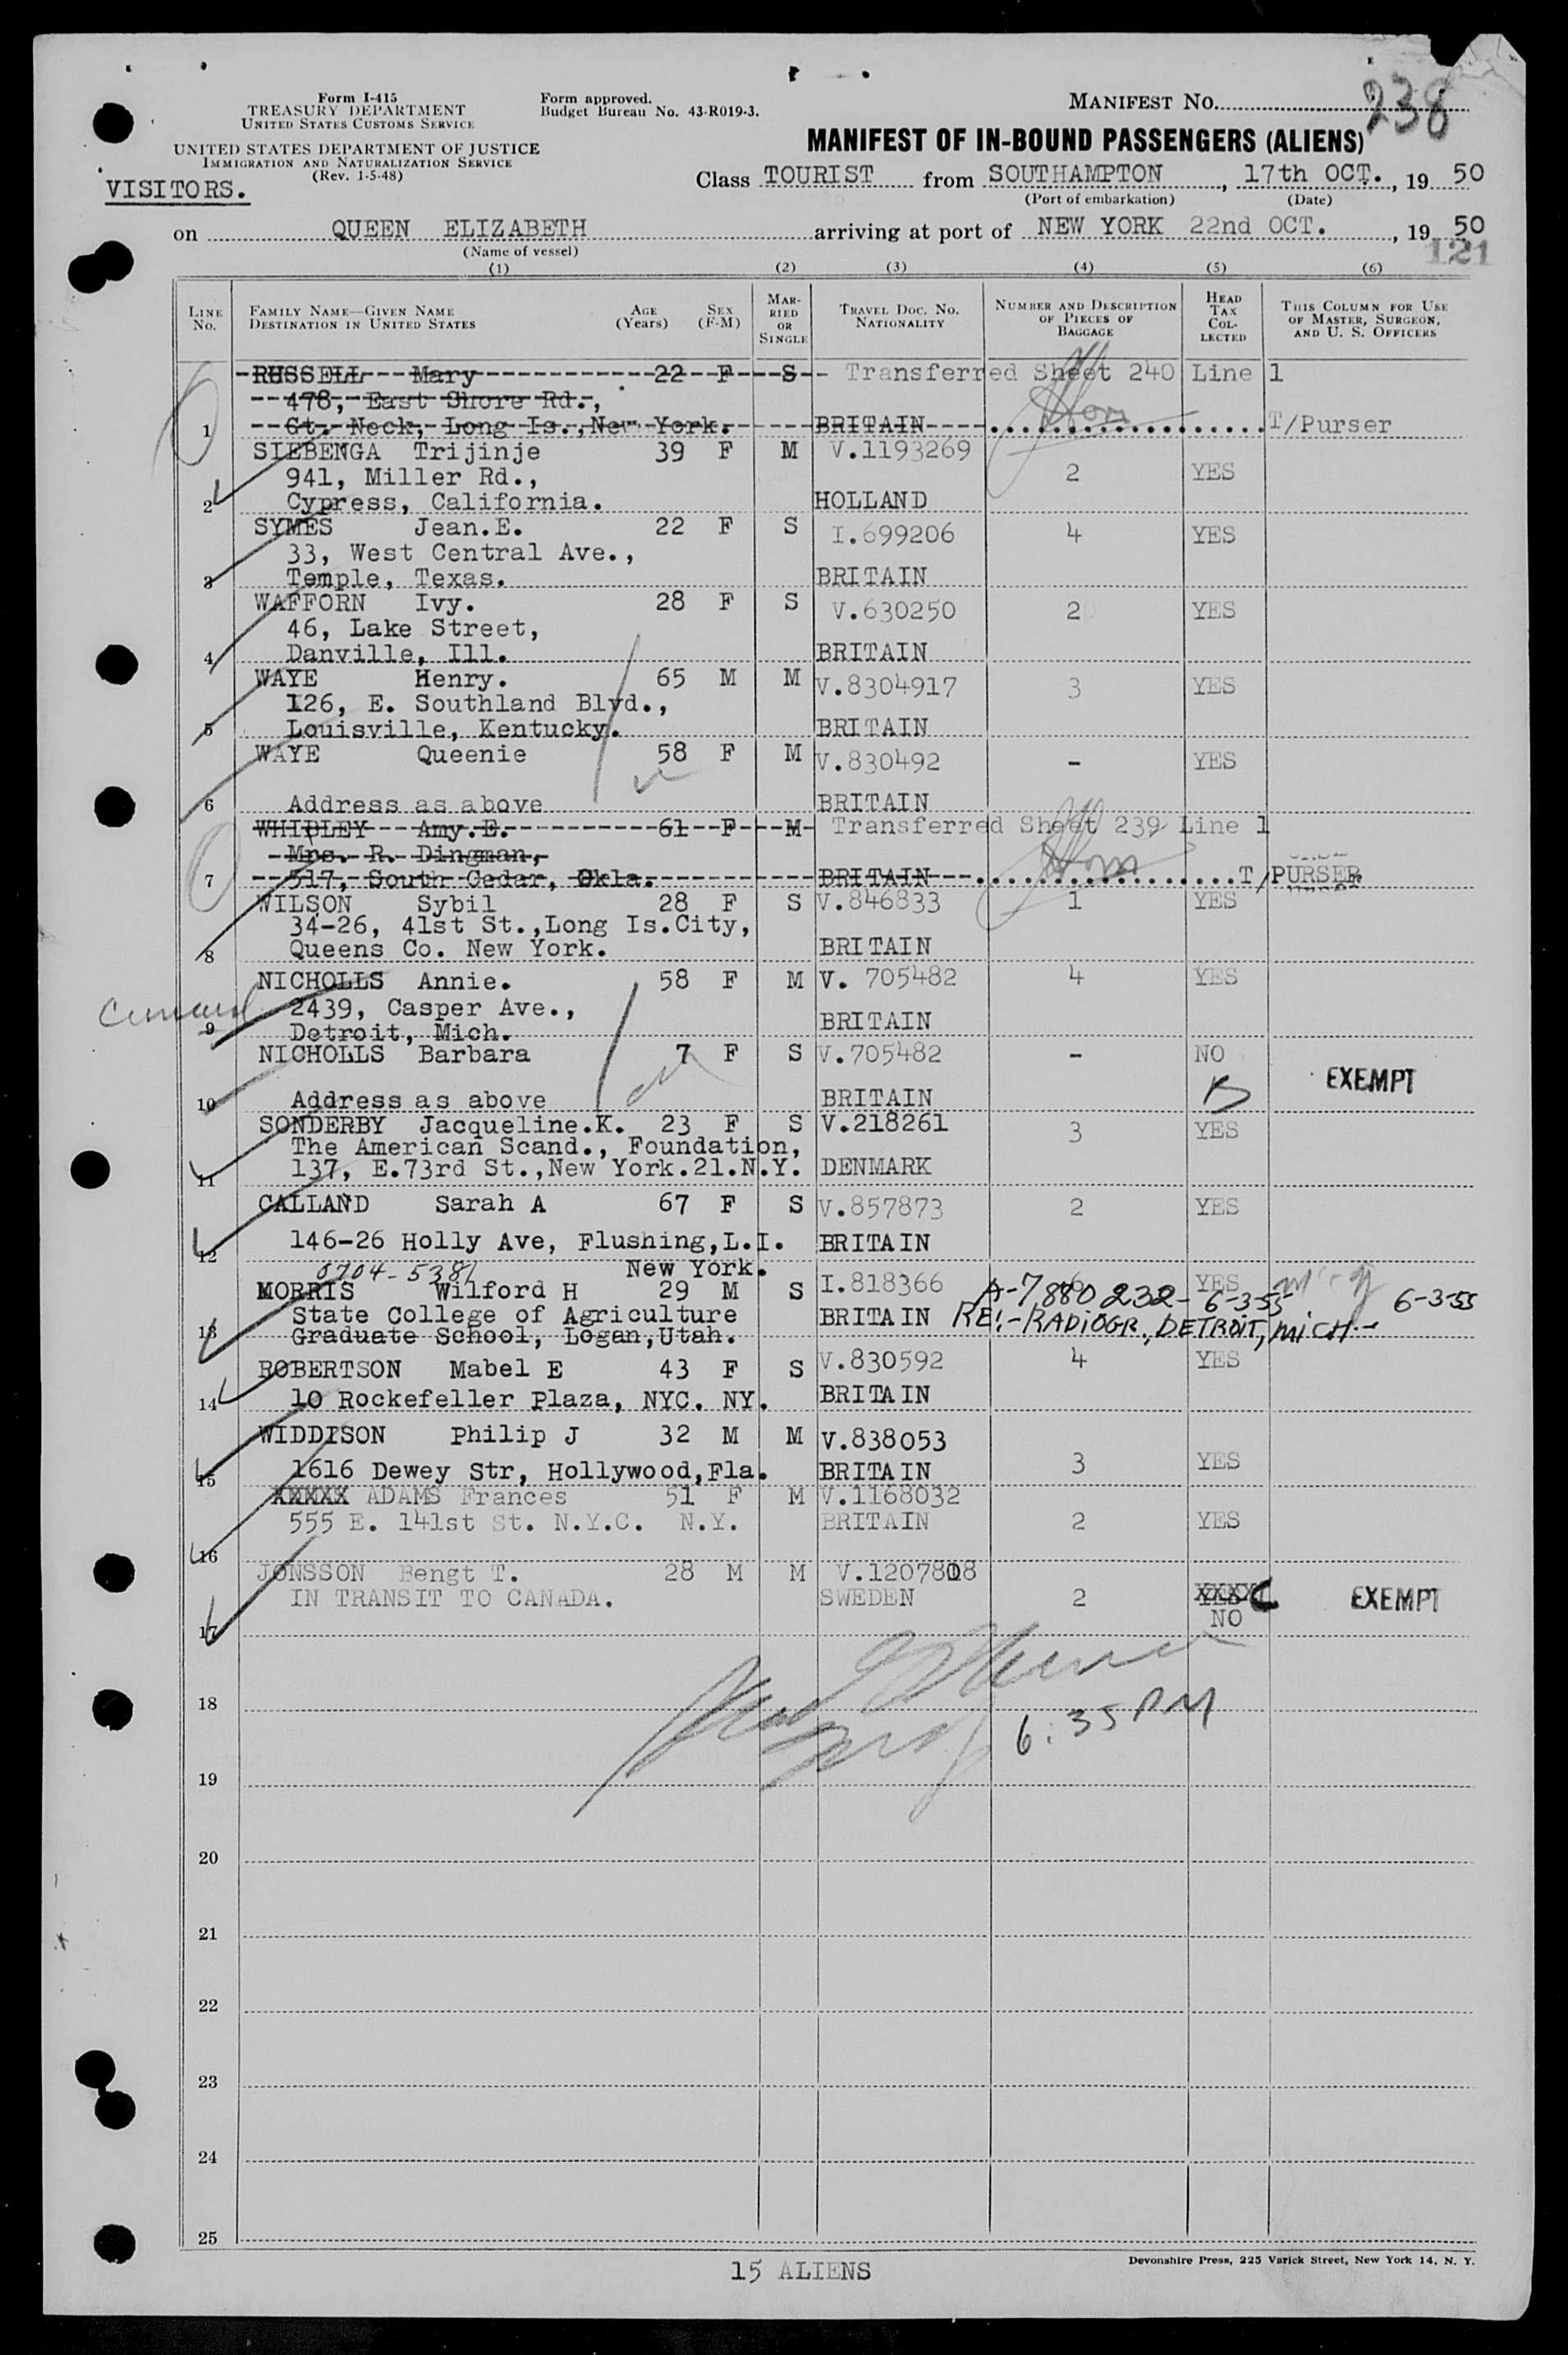 238
Form I-415
TREASURY DEPARTMENT
UNITED STATES CUSTOMS SERVICE
UNITED STATES DEPARTMENT OF JUSTICE
IMMIGRATION AND NATURALIZATION SERVICE
(Rev. 1-5-48)
Form approved.
Budget Bureau No. 43-R019-3.
MANIFEST NO.
MANIFEST OF IN-BOUND PASSENGERS (ALIENS)
VISITORS.
Class TOURIST from SOUTHAMPTON, 17th OCT., 19 50
(Port of embarkation) (Date)
on QUEEN ELIZABETH arriving at port of NEW YORK 22nd OCT., 19 50
(Name of vessel)
121
(1) (2) (3) (4) (5) (6)
LINE NO. FAMILY NAME—GIVEN NAME DESTINATION IN UNITED STATES AGE (Years) SEX (F-M) MARRIED OR SINGLE TRAVEL DOC. NO. NATIONALITY NUMBER AND DESCRIPTION OF PIECES OF BAGGAGE HEAD TAX COLLECTED THIS COLUMN FOR USE OF MASTER, SURGEON, AND U. S. OFFICERS
RUSSELL Mary 22 F S Transferred Sheet 240 Line 1
478, East Shore Rd.,
1 Gt. Neck, Long Is.,New York. BRITAIN T/Purser
SIEBENGA Trijinje 39 F M V.1193269
941, Miller Rd., 2 YES
2 Cypress, California. HOLLAND
SYMES Jean.E. 22 F S I.699206 4 YES
33, West Central Ave.,
3 Temple, Texas. BRITAIN
WAFFORN Ivy. 28 F S V.630250 2 YES
46, Lake Street,
4 Danville, Ill. BRITAIN
WAYE Henry. 65 M M V.8304917 3 YES
126, E. Southland Blvd.,
5 Louisville, Kentucky. BRITAIN
WAYE Queenie 58 F M V.830492 - YES
6 Address as above BRITAIN
WHIPLEY Amy.E. 61 F M Transferred Sheet 239 Line 1
Mrs. R. Dingman,
7 517, South Cedar, Okla. BRITAIN T/PURSER
WILSON Sybil 28 F S V.846833 1 YES
34-26, 41st St.,Long Is.City,
8 Queens Co. New York. BRITAIN
NICHOLLS Annie. 58 F M V. 705482 4 YES
2439, Casper Ave.,
9 Detroit, Mich. BRITAIN
NICHOLLS Barbara 7 F S V.705482 - NO
EXEMPT
10 Address as above BRITAIN
SONDERBY Jacqueline.K. 23 F S V.218261 3 YES
The American Scand., Foundation,
11 137, E.73rd St.,New York.21.N.Y. DENMARK
CALLAND Sarah A 67 F S V.857873 2 YES
12 146-26 Holly Ave, Flushing,L.I. BRITAIN
New York.
MORRIS Wilford H 29 M S I.818366 YES
A-7880232- 6-3-55 6-3-55
State College of Agriculture BRITAIN RE:-RADIOGR., DETROIT, MICH.-
13 Graduate School, Logan,Utah.
ROBERTSON Mabel E 43 F S V.830592 4 YES
14 10 Rockefeller Plaza, NYC. NY. BRITAIN
WIDDISON Philip J 32 M M V.838053
15 1616 Dewey Str, Hollywood,Fla. BRITAIN 3 YES
XXXXX ADAMS Frances 51 F M V.1168032
555 E. 141st St. N.Y.C. N.Y. BRITAIN 2 YES
16
JONSSON Bengt T. 28 M M V.1207808
IN TRANSIT TO CANADA. SWEDEN 2 XXXX NO EXEMPT
17
18
6:35 PM
19
20
21
22
23
24
25
15 ALIENS
Devonshire Press, 225 Varick Street, New York 14, N. Y.